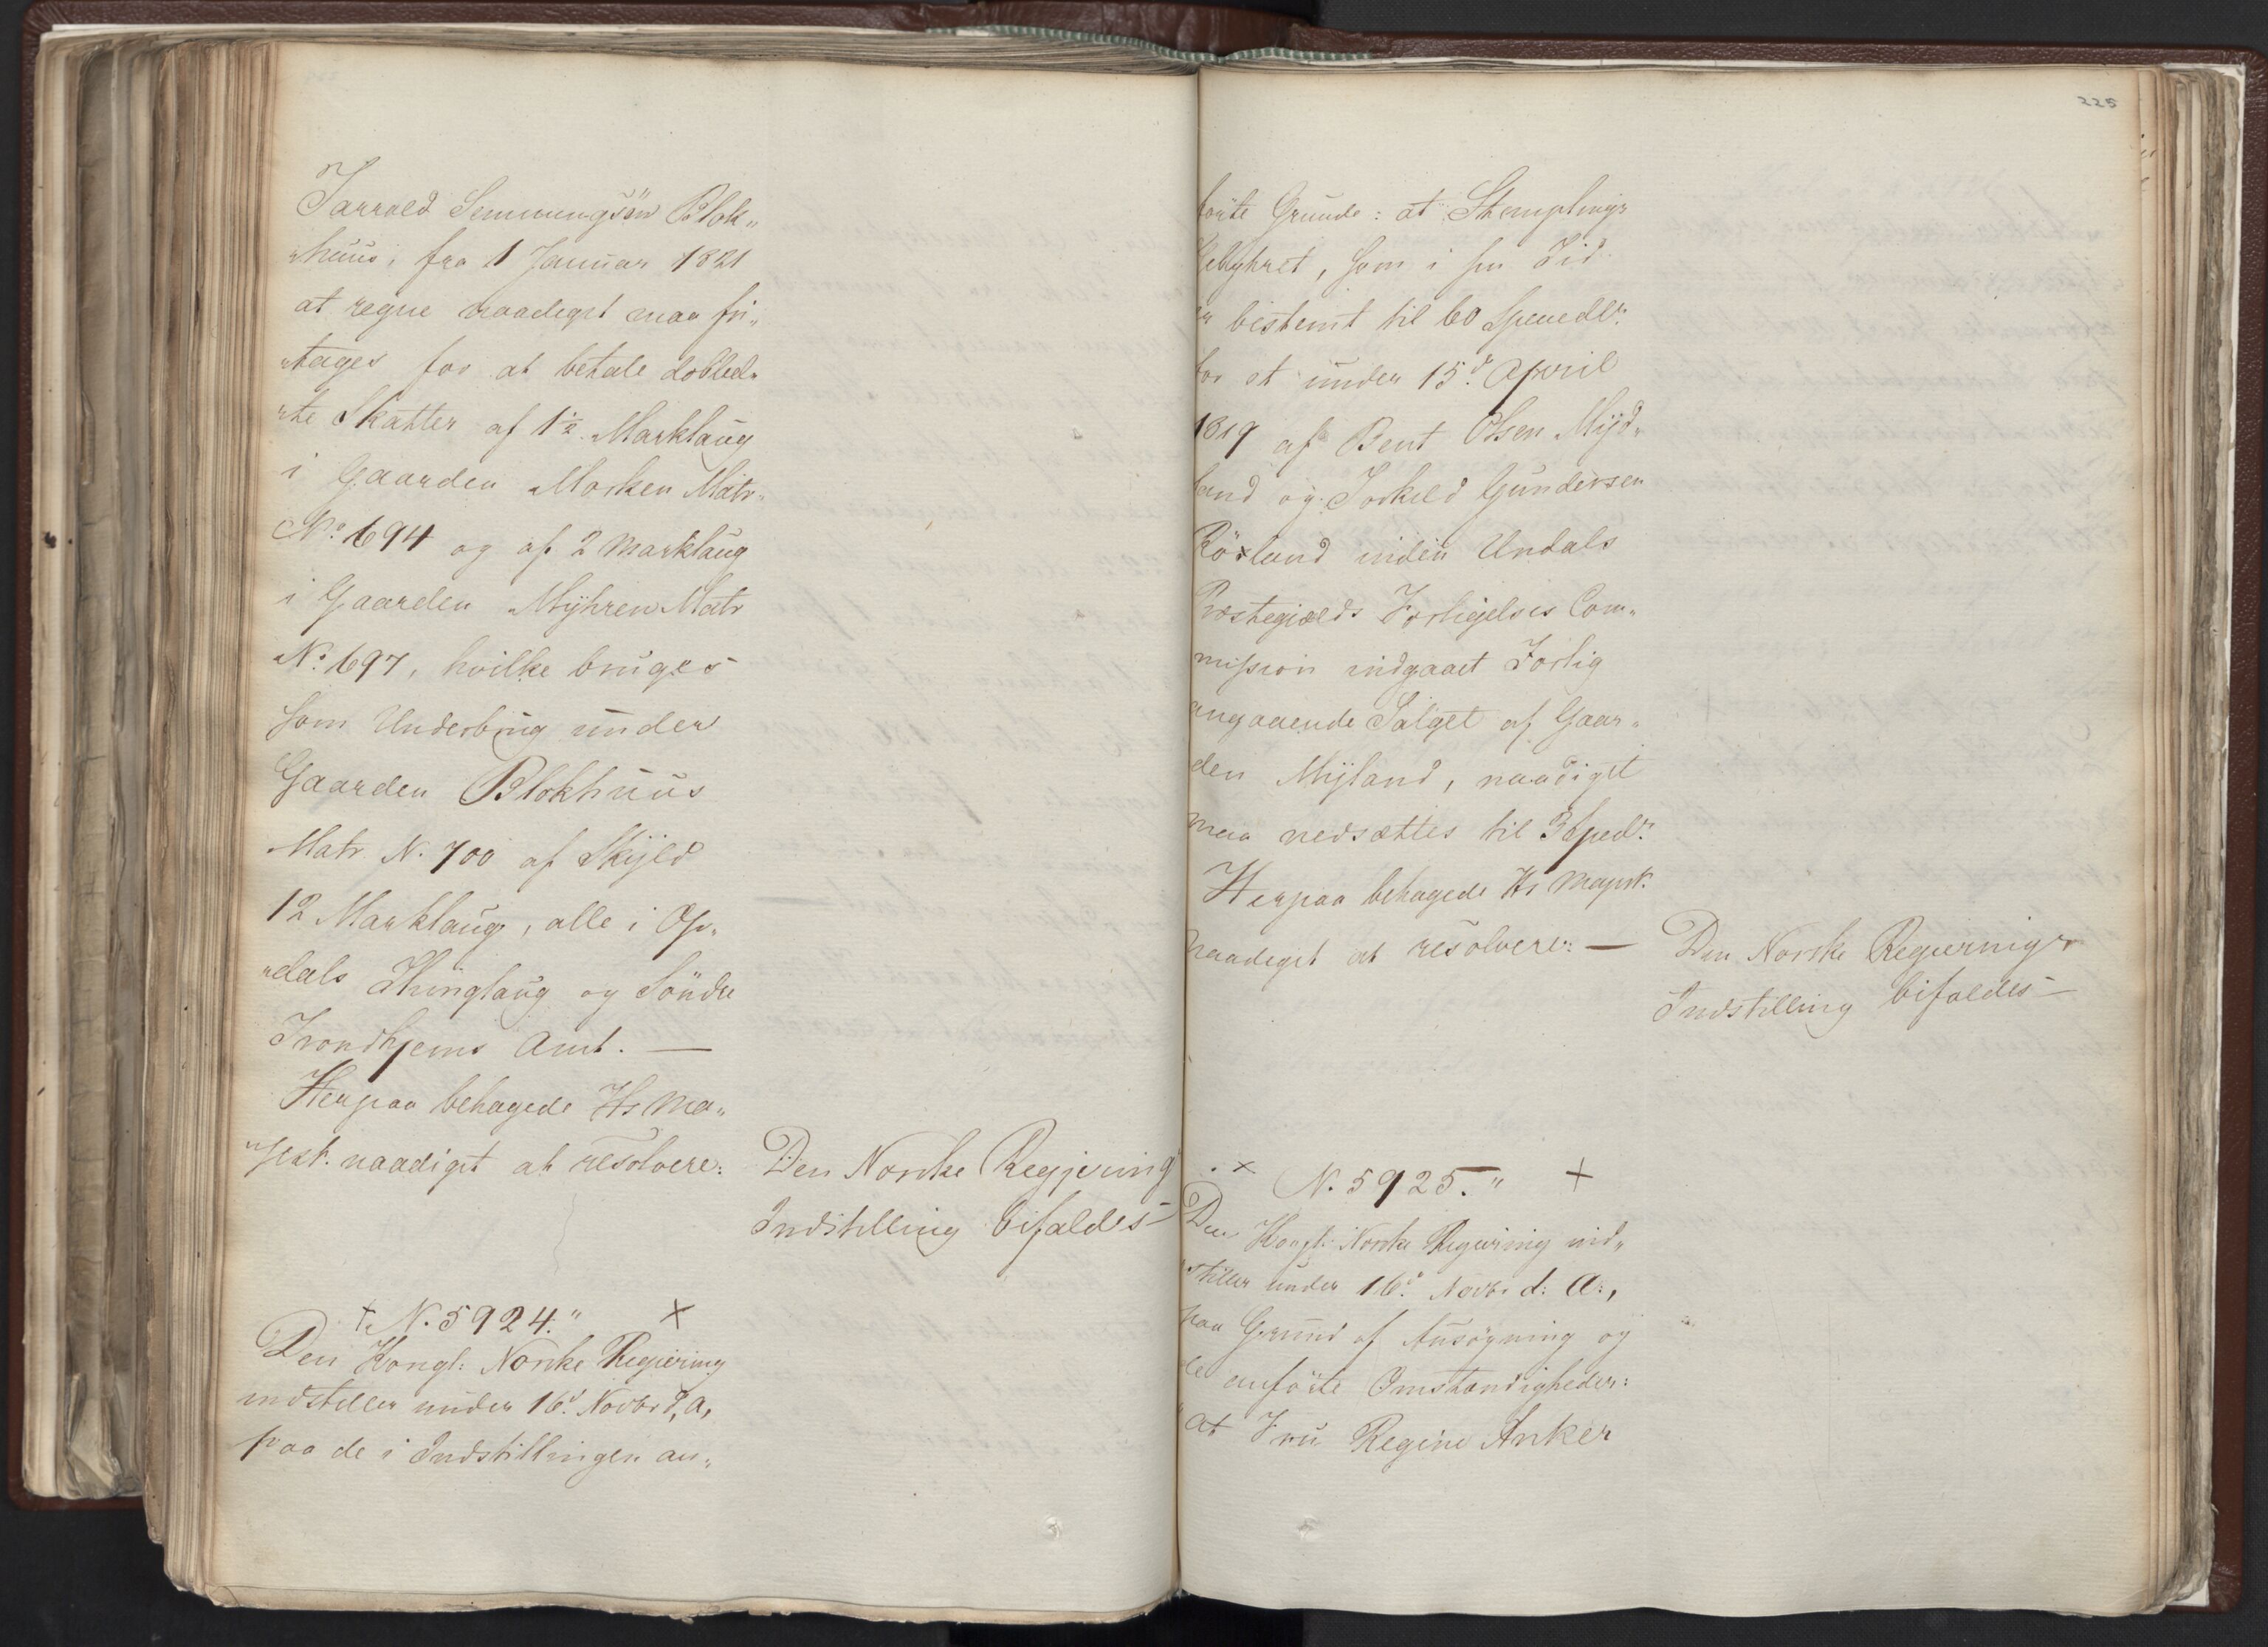 Jarrald Simmungsøn Blok„
„huus, fra 1 Januar 1821
at regne naadigst maa fri„
„tages for at betale dobbel„
„te Skatter af 1½ Marklaug
i Gaarden Morken Matr„
No 694 og af 2 Marklaug
i Gaarden Myhren Matr
No 697, hvilke bruges
som Underbrug under
Gaarden Blokhuus
Matr N. 700 af Skyld
12 Marklaug, alle i Op„
„dals Thinglaug og Söndre
Trondhjems Amt. —
Herpaa behagede Hs Ma„
„jest. naadigst at resolvere:
Den Norske Regjerings
Indstilling bifaldes —
+ N. 5924." +
Den Kongl: Norske Regiering
indstiller under 16d Novbr d. a.
paa de i Indstillingen an„
225
førte Grunde: at Stemplings
Gebyhret, som i sin Tid
er bestemt til 60 Speciedlr.
for et under 15d April
1819 af Bent Olsen Myd„
land og Torkild Gundersen
Röxland inden Undals
Præstegiælds Forligelses Com„
mission indgaaet Forlig
angaaende Salget af Gaar„
den Myland, naadigst
maa nedsættes til 3 Spedlr
Herpaa behagede Hs Majest.
naadigst at resolvere: —
Den Norske Regierings
Indstilling bifaldes —
+ N. 5925." +
Den Kongl: Norske Regiering ind„
stiller under 16d Novbr d: A:,
paa Grund af Ansögning og
de anförte Omstændigheder:
at Fru Regine Anker